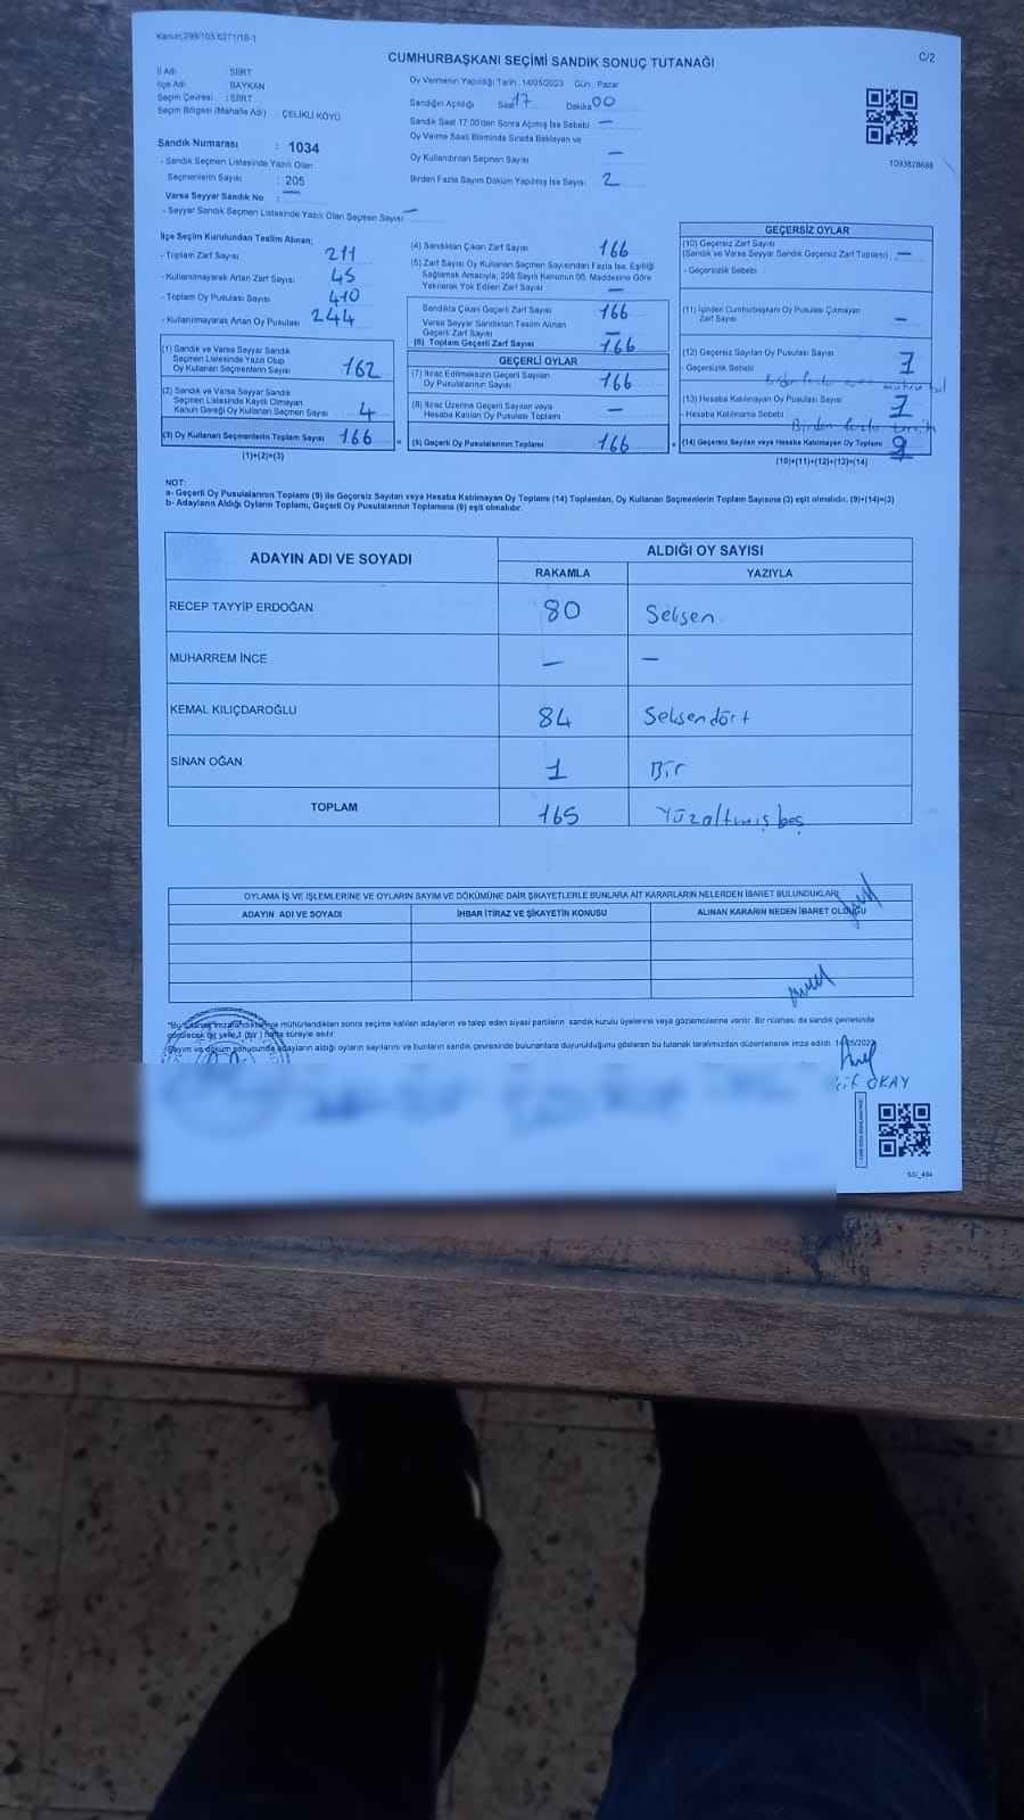 Kanun;298/105;6271/18-1
C/2
CUMHURBAŞKANI SEÇİMİ SANDIK SONUÇ TUTANAĞI
İl Adı SİİRT
İlçe Adı BAYKAN
Seçim Çevresi : SİİRT
Seçim Bölgesi (Mahalle Adı) ÇELİKLİ KÖYÜ
Oy Vermenin Yapıldığı Tarih: 14/05/2023 Gün: Pazar
Sandığın Açıldığı Saat 17 Dakika 00
Sandık Saat 17:00'den Sonra Açılmış İse Sebebi —
Oy Verme Saati Bitiminde Sırada Bekleyen ve
Oy Kullandırılan Seçmen Sayısı —
Birden Fazla Sayım Döküm Yapılmış İse Sayısı 2
1093828688
Sandık Numarası : 1034
- Sandık Seçmen Listesinde Yazılı Olan
Seçmenlerin Sayısı : 205
Varsa Seyyar Sandık No : —
- Seyyar Sandık Seçmen Listesinde Yazılı Olan Seçmen Sayısı —
İlçe Seçim Kurulundan Teslim Alınan;
- Toplam Zarf Sayısı 211
- Kullanılmayarak Artan Zarf Sayısı 45
- Toplam Oy Pusulası Sayısı 410
- Kullanılmayarak Artan Oy Pusulası 244
(1) Sandık ve Varsa Seyyar Sandık
Seçmen Listesinde Yazılı Olup
Oy Kullanan Seçmenlerin Sayısı 162
(2) Sandık ve Varsa Seyyar Sandık
Seçmen Listesinde Kayıtlı Olmayan
Kanun Gereği Oy Kullanan Seçmen Sayısı 4
(3) Oy Kullanan Seçmenlerin Toplam Sayısı 166
(1)+(2)=(3)
(4) Sandıktan Çıkan Zarf Sayısı 166
(5) Zarf Sayısı Oy Kullanan Seçmen Sayısından Fazla İse, Eşitliği
Sağlamak Amacıyla, 298 Sayılı Kanunun 98. Maddesine Göre
Yakılarak Yok Edilen Zarf Sayısı —
Sandıkta Çıkan Geçerli Zarf Sayısı 166
Varsa Seyyar Sandıktan Teslim Alınan
Geçerli Zarf Sayısı —
(6) Toplam Geçerli Zarf Sayısı 166
GEÇERLİ OYLAR
(7) İtiraz Edilmeksizin Geçerli Sayılan
Oy Pusulalarının Sayısı 166
(8) İtiraz Üzerine Geçerli Sayılan veya
Hesaba Katılan Oy Pusulası Toplamı —
(9) Geçerli Oy Pusulalarının Toplamı 166
GEÇERSİZ OYLAR
(10) Geçersiz Zarf Sayısı
(Sandık ve Varsa Seyyar Sandık Geçersiz Zarf Toplamı) —
- Geçersizlik Sebebi
(11) İçinden Cumhurbaşkanı Oy Pusulası Çıkmayan
Zarf Sayısı —
(12) Geçersiz Sayılan Oy Pusulası Sayısı
- Geçersizlik Sebebi
(13) Hesaba Katılmayan Oy Pusulası Sayısı
- Hesaba Katılmama Sebebi Birden fazla tercih
(14) Geçersiz Sayılan veya Hesaba Katılmayan Oy Toplamı
(10)+(11)+(12)+(13)=(14)
NOT:
a- Geçerli Oy Pusulalarının Toplamı (9) ile Geçersiz Sayılan veya Hesaba Katılmayan Oy Toplamı (14) Toplamları, Oy Kullanan Seçmenlerin Toplam Sayısına (3) eşit olmalıdır. (9)+(14)=(3)
b- Adayların Aldığı Oyların Toplamı, Geçerli Oy Pusulalarının Toplamına (9) eşit olmalıdır.
ADAYIN ADI VE SOYADI ALDIĞI OY SAYISI
RAKAMLA YAZIYLA
RECEP TAYYİP ERDOĞAN 80 Seksen
MUHARREM İNCE — —
KEMAL KILIÇDAROĞLU 84 Seksendört
SİNAN OĞAN 1 Bir
TOPLAM 165 Yüzaltmışbeş
OYLAMA İŞ VE İŞLEMLERİNE VE OYLARIN SAYIM VE DÖKÜMÜNE DAİR ŞİKAYETLERLE BUNLARA AİT KARARLARIN NELERDEN İBARET BULUNDUKLARI
ADAYIN ADI VE SOYADI İHBAR İTİRAZ VE ŞİKAYETİN KONUSU ALINAN KARARIN NEDEN İBARET OLDUĞU
mühürlendikten sonra seçime katılan adayların ve talep eden siyasi partilerin sandık kurulu üyelerine veya gözlemcilerine verilir. Bir nüshası da sandık çevresinde
görülecek bir yere 1 (bir) hafta süreyle asılır.
Sayım ve döküm sonucunda adayların aldığı oyların sayılarını ve bunların sandık çevresinde bulunanlara duyurulduğunu gösteren bu tutanak tarafımızdan düzenlenerek imza edildi. 14/05/2023
OKAY